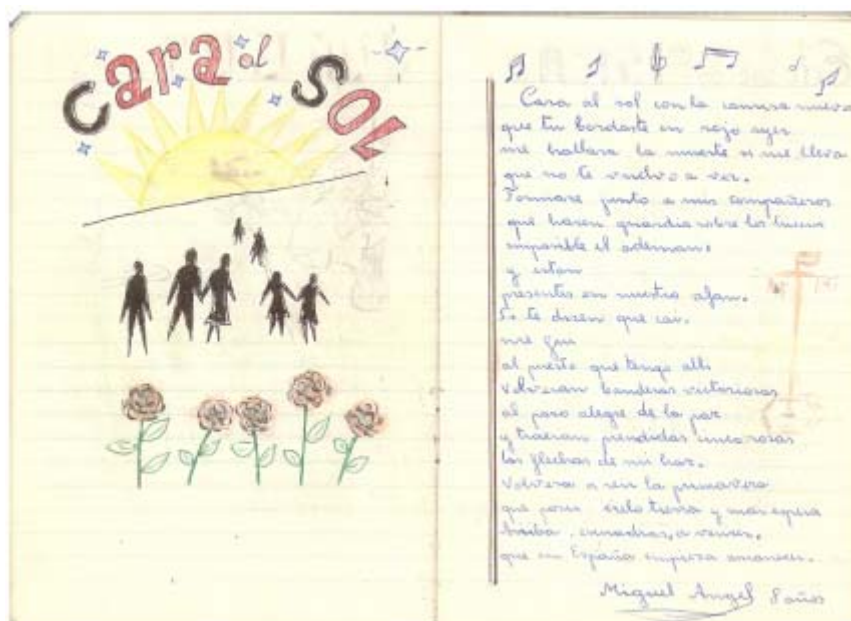 Cara al SOL
Cara al sol con la camisa nueva
que tu bordaste en rojo ayer
me hallara la muerte si me lleva
que no te vuelvo a ver.
Formare junto a mis compañeros
que hacen guardia sobre los luceros
imposible el ademan.
y estan
presentes en nuestro afan.
Si te dicen que cai.
me fui
al puesto que tengo alli
Volveran banderas victoriosas
al paso alegre de la paz
y traeran prendidas cinco rosas
las flechas de mi haz.
Volvera a reir la primavera
que por cielo tierra y mar espera
Arriba escuadras, a vencer.
que en España empieza amanecer.
Miguel Angel 8 años